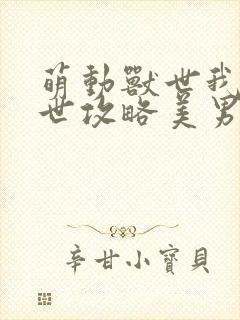 萌動獸世我
世攻略美男
辛甘小寶貝